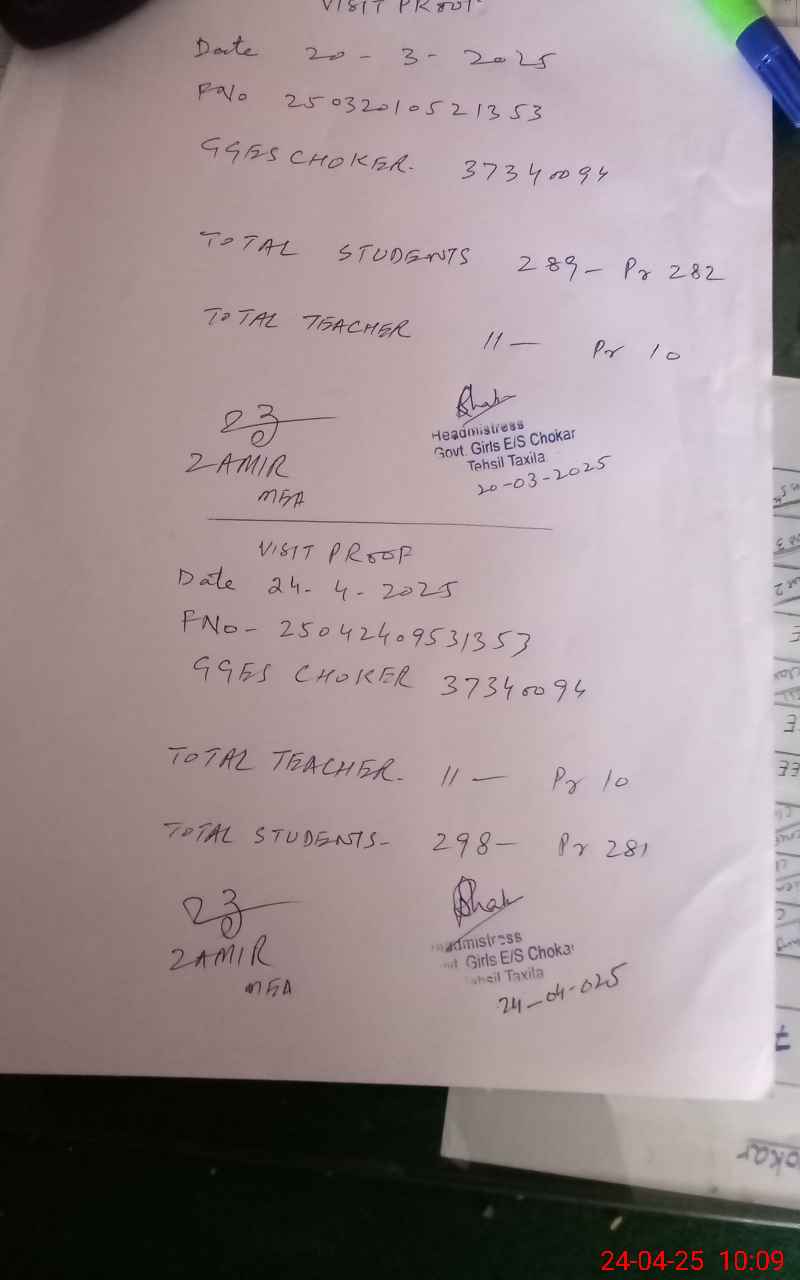 VISIT PROOF
Date 20-3-2025
FNo 25032010521353
GGES CHOKER. 37340094
TOTAL STUDENTS 289- Pr 282
TOTAL TEACHER 11- Pr 10
ZAMIR
MEA
Headmistress
Govt. Girls E/S Chokar
Tehsil Taxila
20-03-2025
VISIT PROOF
Date 24-4-2025
FNo- 25042409531353
GGES CHOKER 37340094
TOTAL TEACHER. 11- Pr 10
TOTAL STUDENTS- 298- Pr 281
ZAMIR
MEA
Headmistress
Girls E/S Chokar
Tehsil Taxila
24-04-025
24-04-25 10:09